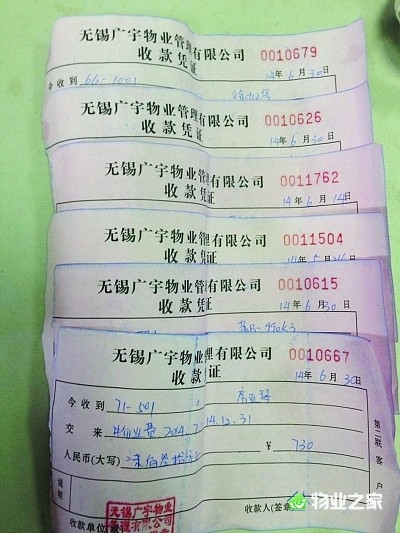 无锡广宇物业管理有限公司
收款凭证
0010679
14年6月30日
今收到 66-1001
无锡广宇物业管理有限公司
收款凭证
0010626
14年6月30日
无锡广宇物业管理有限公司
收款凭证
0011762
14年6月14日
无锡广宇物业管理有限公司
收款凭证
0011504
无锡广宇物业管有限公司
收款凭证
0010615
14年6月30日
无锡广宇物业管理有限公司
收款凭证
0010667
14年6月30日
今收到 71-501
交来 物业费 2014.7 14.12.31
¥ 730
人民币(大写) 柒佰叁拾
说明
收款单位
收款人(签章)
第二联
客户
无锡广宇物业
管理有限公司
物业之家